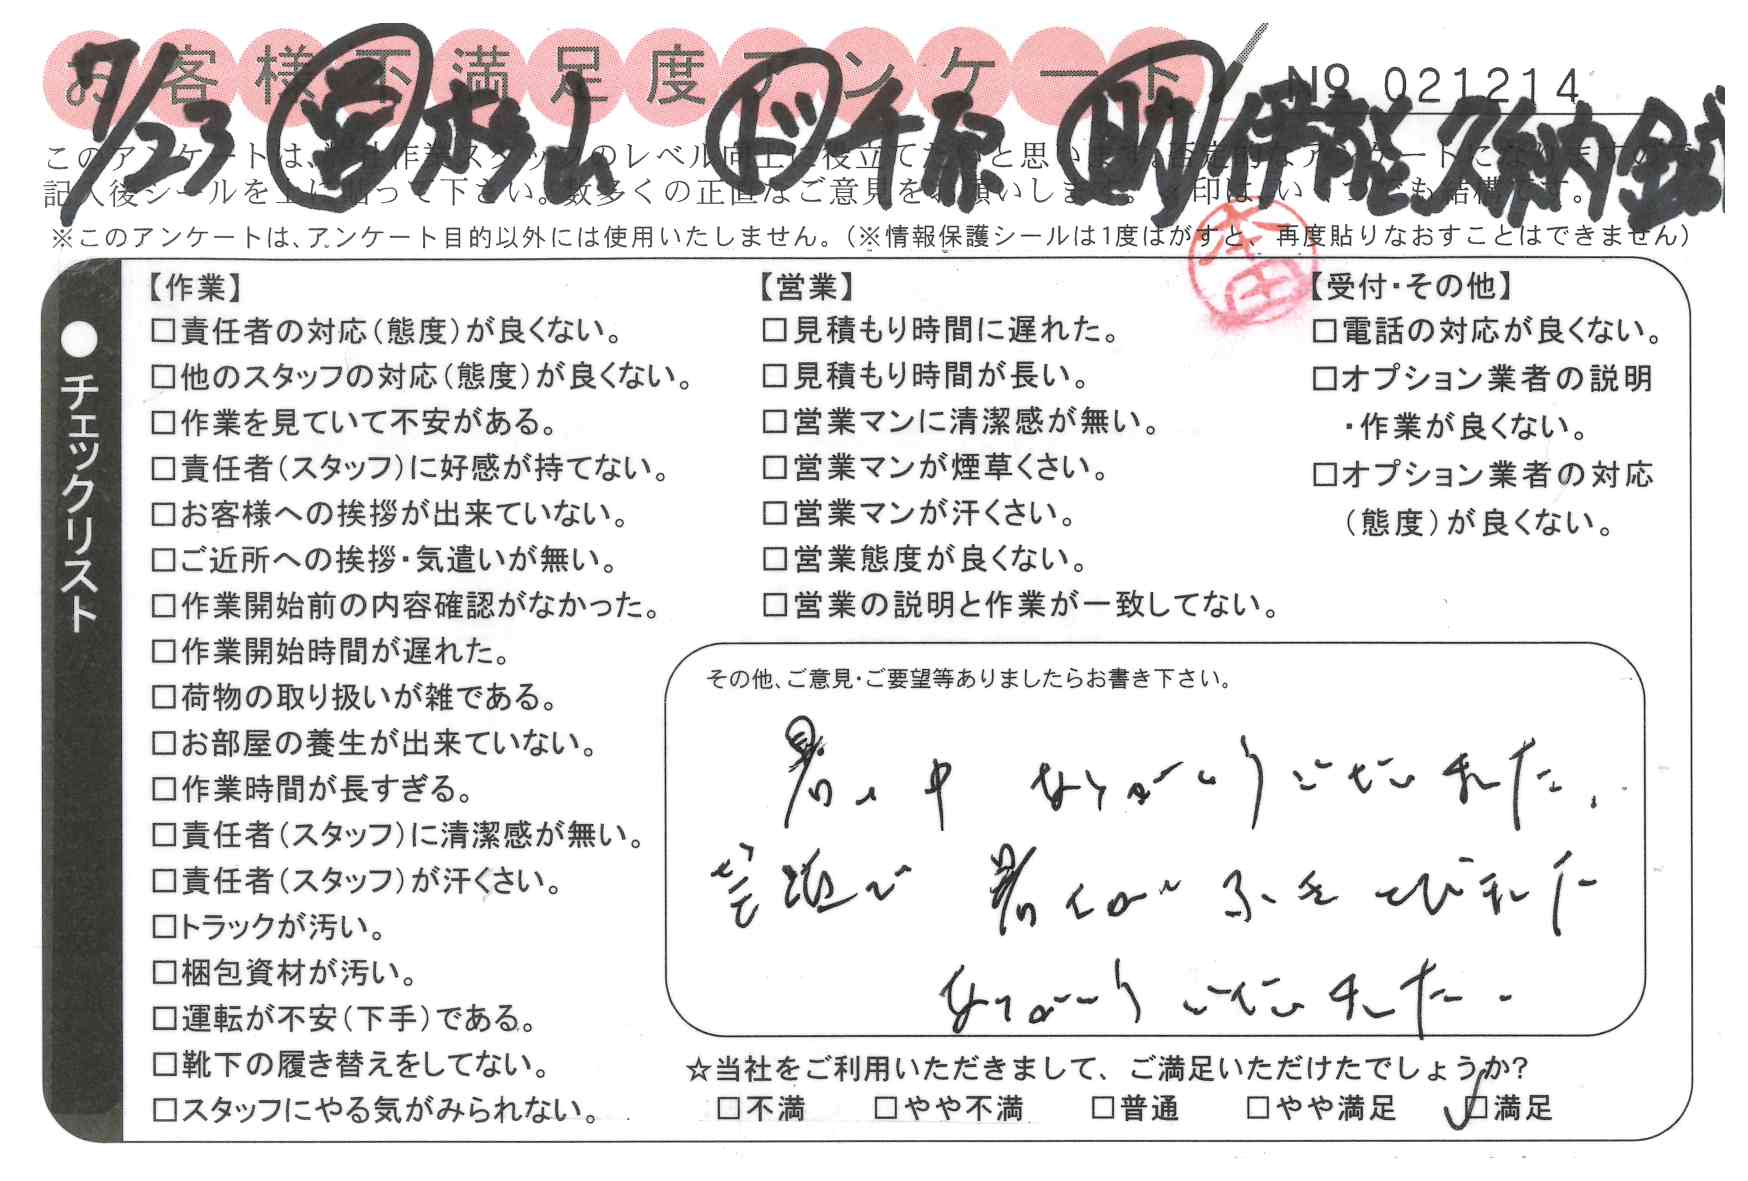 お客様不満足度アンケート
№ 021214
7/23 営 水島 ド 千原 助 伊高と、久保内
このアンケートは、弊社作業スタッフのレベル向上に役立てたいと思います。否定的なアンケートになりますので、
記入後シールを上に貼って下さい。数多くの正直なご意見をお願いします。✓印は、いくつでも結構です。
※このアンケートは、アンケート目的以外には使用いたしません。(※情報保護シールは1度はがすと、再度貼りなおすことはできません)
本田
●チェックリスト
【作業】
□責任者の対応(態度)が良くない。
□他のスタッフの対応(態度)が良くない。
□作業を見ていて不安がある。
□責任者(スタッフ)に好感が持てない。
□お客様への挨拶が出来ていない。
□ご近所への挨拶・気遣いが無い。
□作業開始前の内容確認がなかった。
□作業開始時間が遅れた。
□荷物の取り扱いが雑である。
□お部屋の養生が出来ていない。
□作業時間が長すぎる。
□責任者(スタッフ)に清潔感が無い。
□責任者(スタッフ)が汗くさい。
□トラックが汚い。
□梱包資材が汚い。
□運転が不安(下手)である。
□靴下の履き替えをしてない。
□スタッフにやる気がみられない。
【営業】
□見積もり時間に遅れた。
□見積もり時間が長い。
□営業マンに清潔感が無い。
□営業マンが煙草くさい。
□営業マンが汗くさい。
□営業態度が良くない。
□営業の説明と作業が一致してない。
【受付・その他】
□電話の対応が良くない。
□オプション業者の説明
・作業が良くない。
□オプション業者の対応
(態度)が良くない。
その他、ご意見・ご要望等ありましたらお書き下さい。
暑い中 ありがとうございました。
暑さがふきとびました
ありがとうございました。
☆当社をご利用いただきまして、ご満足いただけたでしょうか?
□不満 □やや不満 □普通 □やや満足 ☑満足